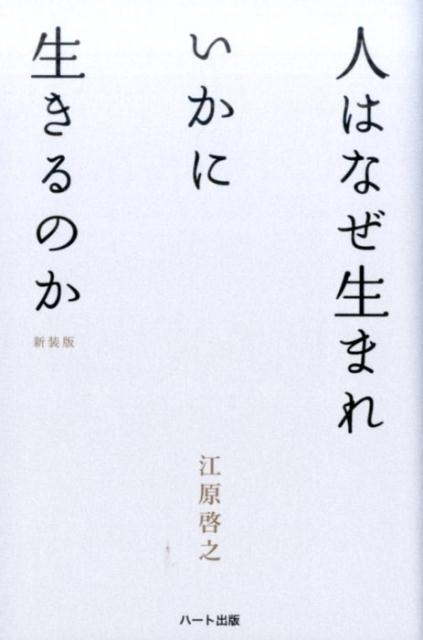 人はなぜ生まれ
いかに
生きるのか
新装版
江原啓之
ハート出版